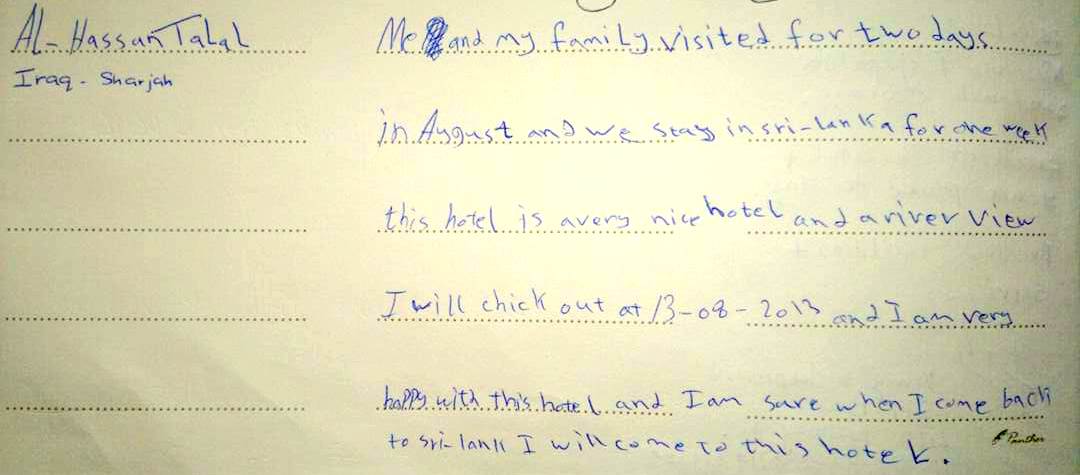 Al-Hassan Talal
Iraq - Sharjah
Me and my family visited for two days
in August and we stay in sri-lanka for one week
this hotel is a very nice hotel and a river view
I will chick out at 13-08-2013 and I am very
happy with this hotel and I am sure when I come back
to sri-lank I will come to this hotel.
Panther